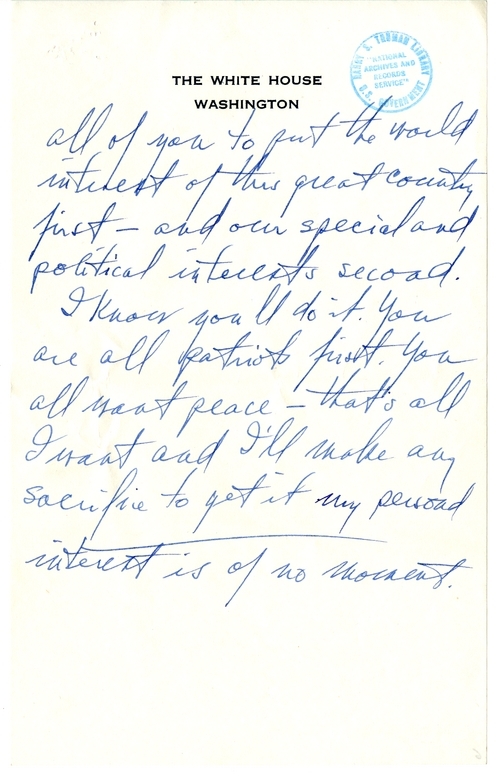 HARRY S. TRUMAN LIBRARY
"NATIONAL
ARCHIVES AND
RECORDS
SERVICE"
U.S. GOVERNMENT
THE WHITE HOUSE
WASHINGTON
all of you to put the world
interest of this great country
first – and our special and
political interests second.
I know you'll do it. You
are all patriots first. You
all want peace – that's all
I want and I'll make any
sacrifice to get it my personal
interest is of no moment.